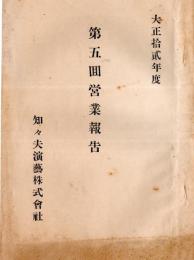 大正拾貳年度
第五囘營業報吿
知々夫演藝株式會社